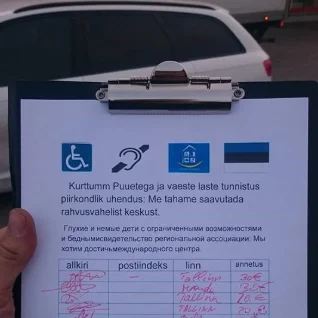 Kurttumm Puuetega ja vaeste laste tunnistus
piirkondlik uhendus: Me tahame saavutada
rahvusvahelist keskust.
Глухие и немые дети с ограниченными возможностями
и беднымисвидетельство региональной ассоциации. Мы
хотим достичьмеждународного центра.
allkiri postiindeks linn annetus
— Tallinn 30€
Tallinn